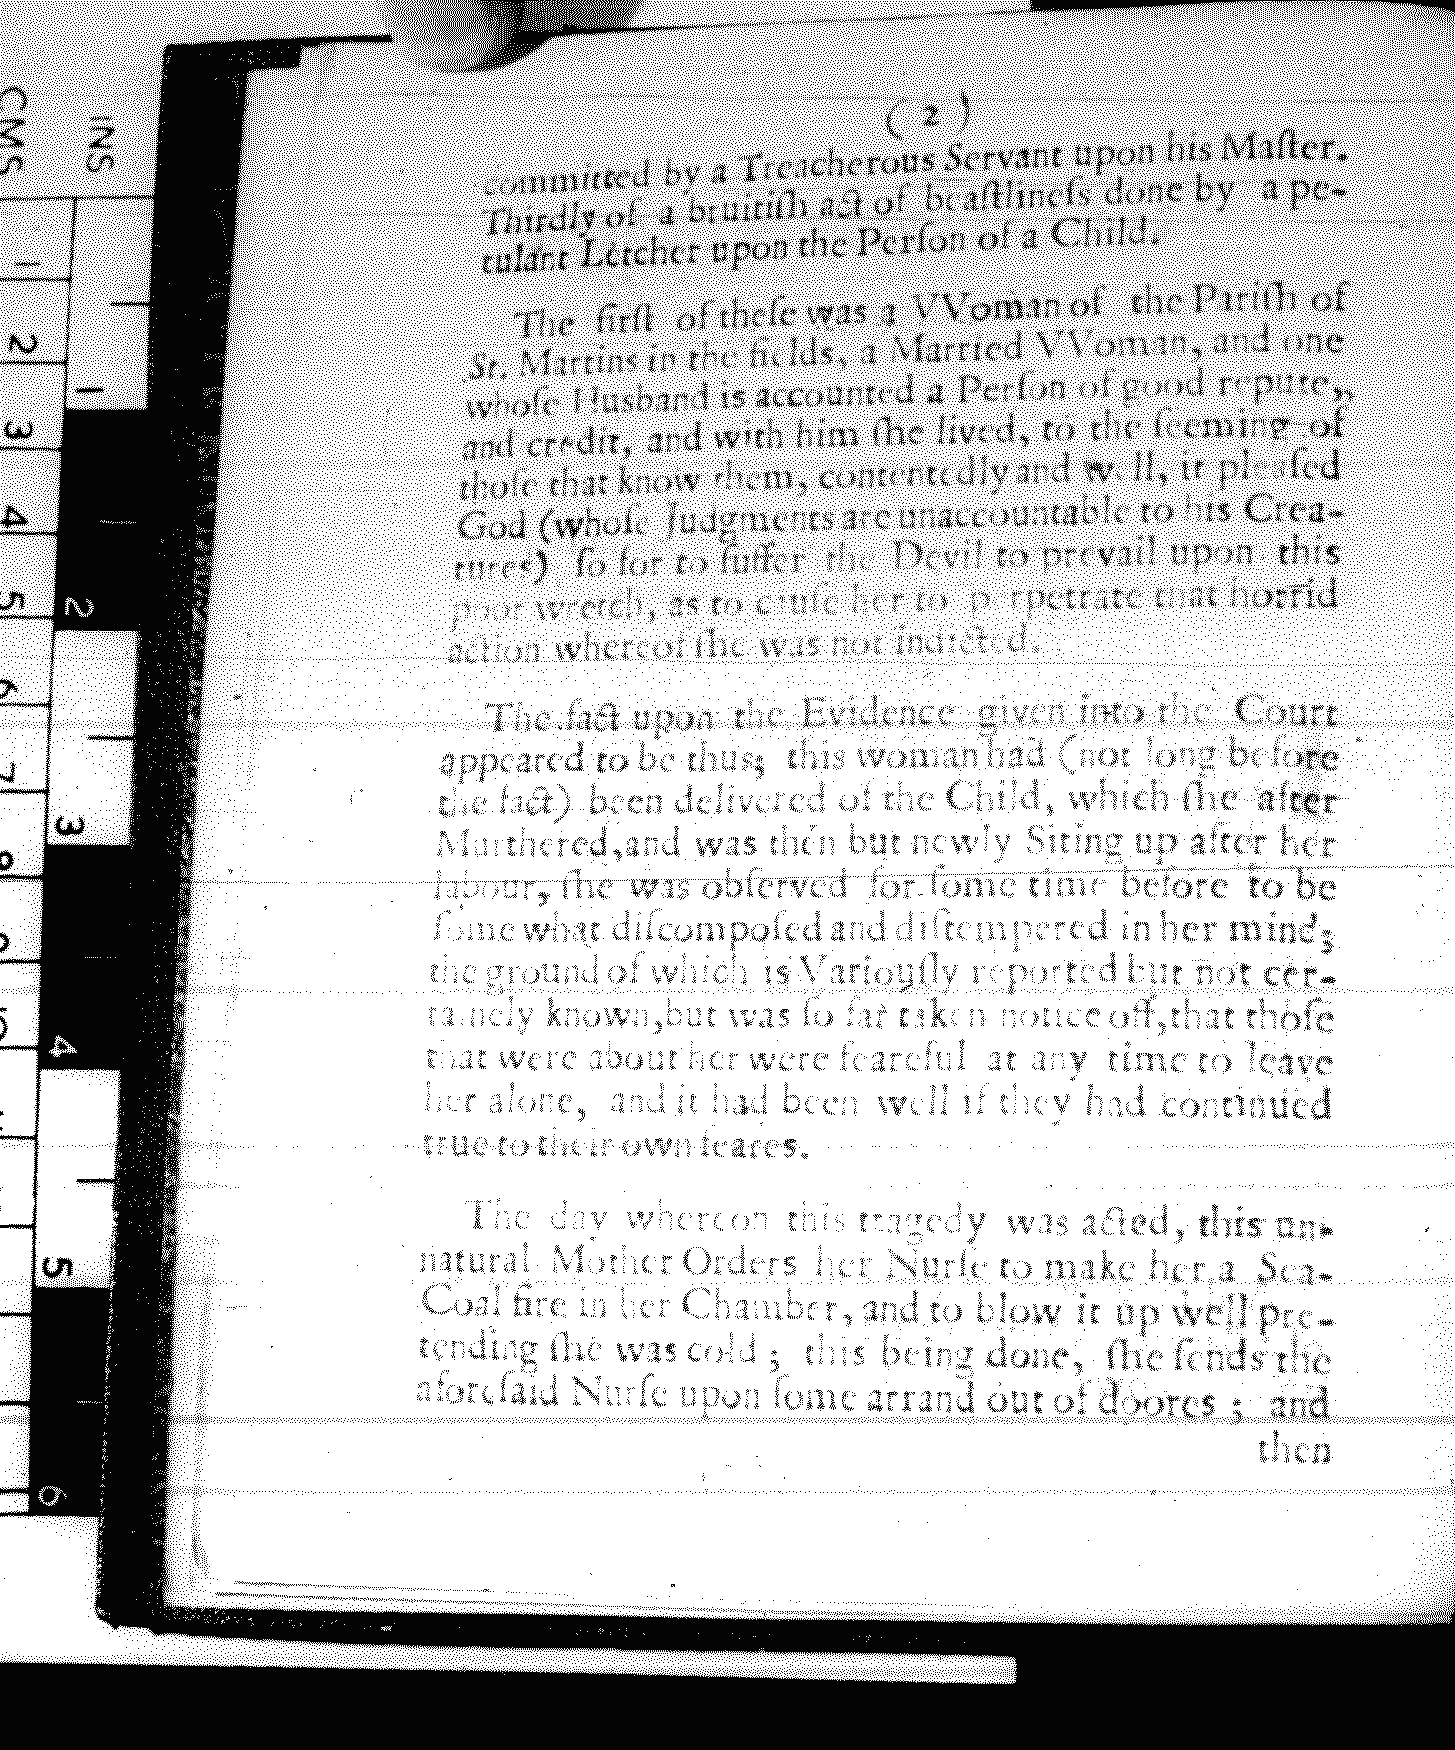 ( 2 )
committed by a Treacherous Servant upon his Maſter.
Thirdly of a bruitiſh act of beaſtlineſs done by a pe-
tulant Letcher upon the Perſon of a Child.
The firſt of theſe was a VVoman of the Pariſh of
St. Martins in the fields, a Married VVoman, and one
whoſe Husband is accounted a Perſon of good repute,
and credit, and with him ſhe lived, to the ſeeming of
thoſe that know them, contentedly and well, it pleaſed
God (whoſe Judgments are unaccountable to his Crea-
tures) ſo for to ſuffer the Devil to prevail upon this
poor wretch, as to cauſe her to perpetrate that horrid
action whereof ſhe was not indicted.
The fact upon the Evidence given into the Court
appeared to be thus; this woman had (not long before
the fact) been delivered of the Child, which ſhe after
Murthered,and was then but newly Siting up after her
labour, ſhe was obſerved for ſome time before to be
ſome what diſcompoſed and diſtempered in her mind;
the ground of which is Variouſly reported but not cer-
tainely known,but was ſo far taken notice off,that thoſe
that were about her were feareful at any time to leave
her alone, and it had been well if they had continued
true to their own feares.
The day whereon this tragedy was acted, this un-
natural Mother Orders her Nurſe to make her a Sea-
Coal fire in her Chamber, and to blow it up well pre-
tending ſhe was cold ; this being done, ſhe ſends the
aforeſaid Nurſe upon ſome arrand out of doores ; and
then
INS
CMS
1
2
3
4
5
6
1
2
3
4
5
6
7
8